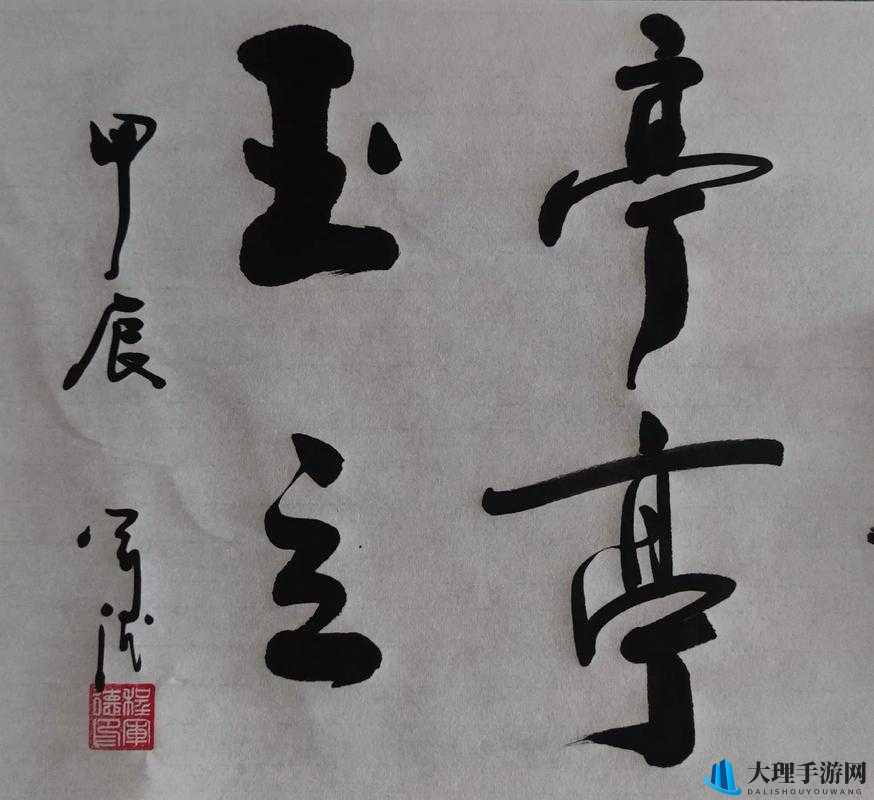 亭亭
玉立
甲辰
大理手游网
DALISHOUYOUWANG